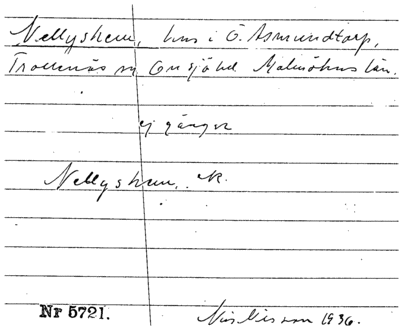 Nellyshem, hus i Ö. Asmundtorp,
Trollenäs sn Onsjö hd Malmöhus län.
ej gängse
Nellyshem, N.
Nr 5721.
Nils Nilsson 1936.